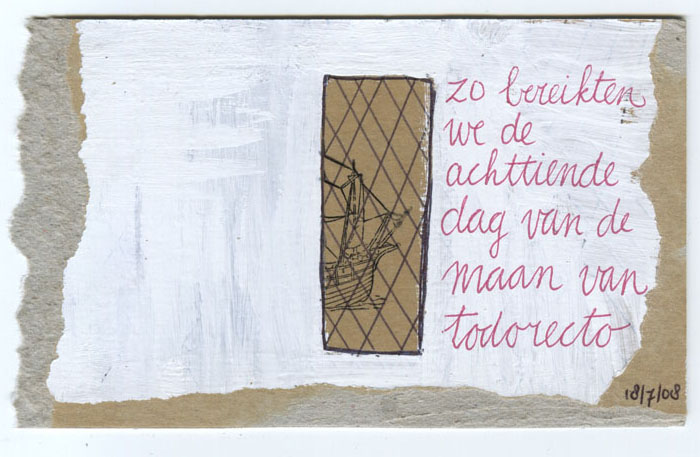 zo bereikten
we de
achttiende
dag van de
maan van
todorecto
18/7/08